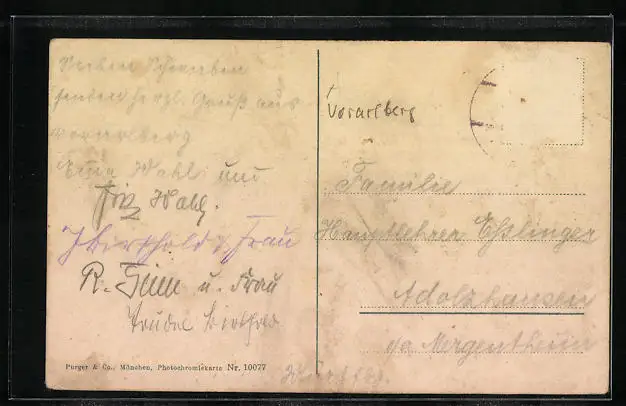 Sieben Schwaben
senden herzl. Gruß aus
Vorarlberg
Wahl und
Fritz Wahl.
J Birthold & Frau
R. Frau u. Frau
Trudel
Purger & Co., München, Photochromiekarte Nr. 10077
Vorarlberg
Familie
Hauptlehrer Eßlinger
Adolzhausen
Mergentheim